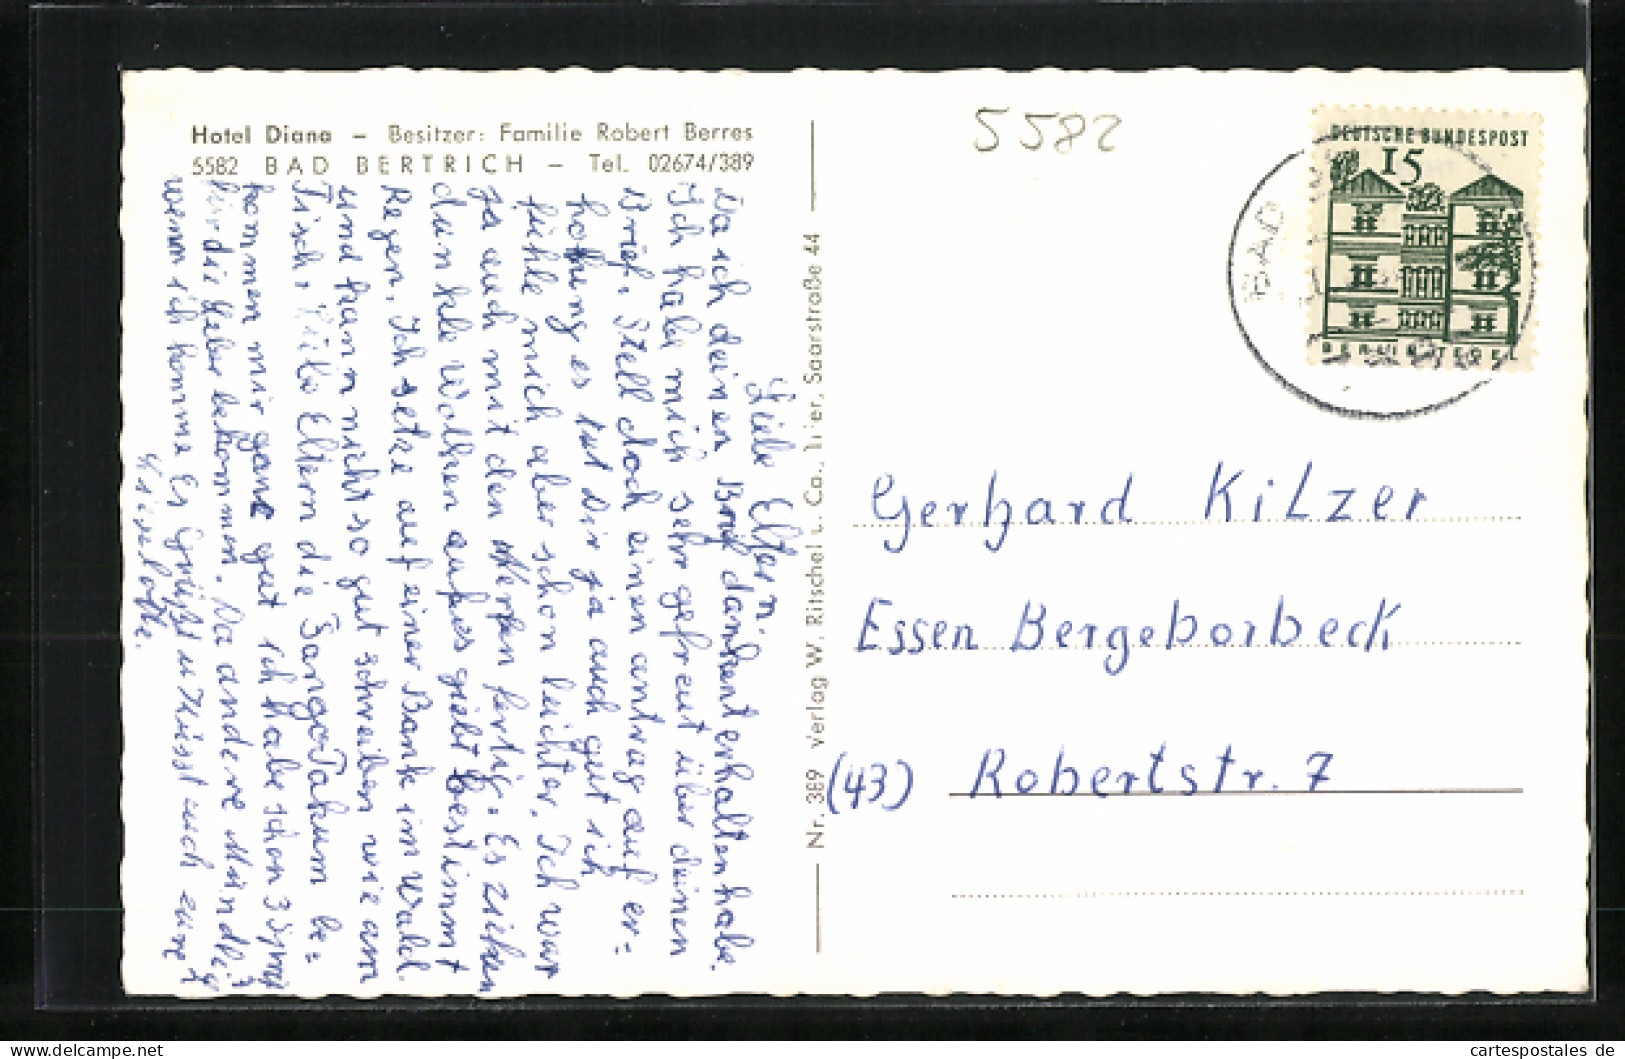 Hotel Diana – Besitzer: Familie Robert Berres
5582 BAD BERTRICH – Tel. 02674/389
Liebe Eltern.
Da ich deinen Brief dankent erhalten habe.
Ich habe mich sehr gefreut über deinen
Brief. Stell doch einen antrag auf er=
hohung es tut Dir ja auch gut ich
fühle mich aber schon leichter. Ich war
ja auch mit den Nerfen fertig. Es ziehen
dunkle Wolken auf es giebt bestimmt
Regen. Ich setze auf einer Bank im Wald.
und kann nicht so gut schreiben wie am
Tisch. Liebe Eltern die Fango Pakum be=
kommen mir ganz gut ich habe schon 3
für die Leber bekommen. Da andere Mündlich
wenn ich komme Es Grüßt u Küsst euch eure
Lieselotte.
Nr. 389 Verlag W. Ritschel u. Co., Trier, Saarstraße 44
5582
DEUTSCHE BUNDESPOST
15
BERLIN TEGEL
BAD
Gerhard Kilzer
Essen Bergeborbeck
(43) Robertstr. 7
cartespostales.eu
cartespostales de